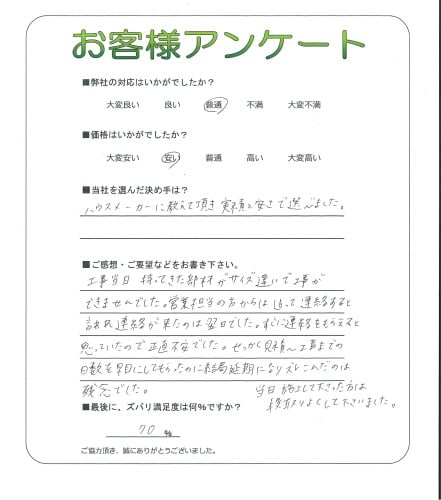 お客様アンケート
■弊社の対応はいかがでしたか？
大変良い 良い 普通 不満 大変不満
■価格はいかがでしたか？
大変安い 安い 普通 高い 大変高い
■当社を選んだ決め手は？
ハウスメーカーに教えて頂き 実績と安さで選びました。
■ご感想・ご要望などをお書き下さい。
工事当日 持ってきた部材がサイズ違いで工事が
できませんでした。営業担当の方からは 追って連絡すると
言われ 連絡が来たのは翌日でした。すぐに連絡をもらえると
思っていたので正直不安でした。せっかく見積〜工事までの
日数を早目にしてもらったのに結局延期になりズレこんだのは
残念でした。
当日 施工して下さった方は
段取りよくして下さいました。
■最後に、ズバリ満足度は何%ですか？
70 %
ご協力頂き、誠にありがとうございました。